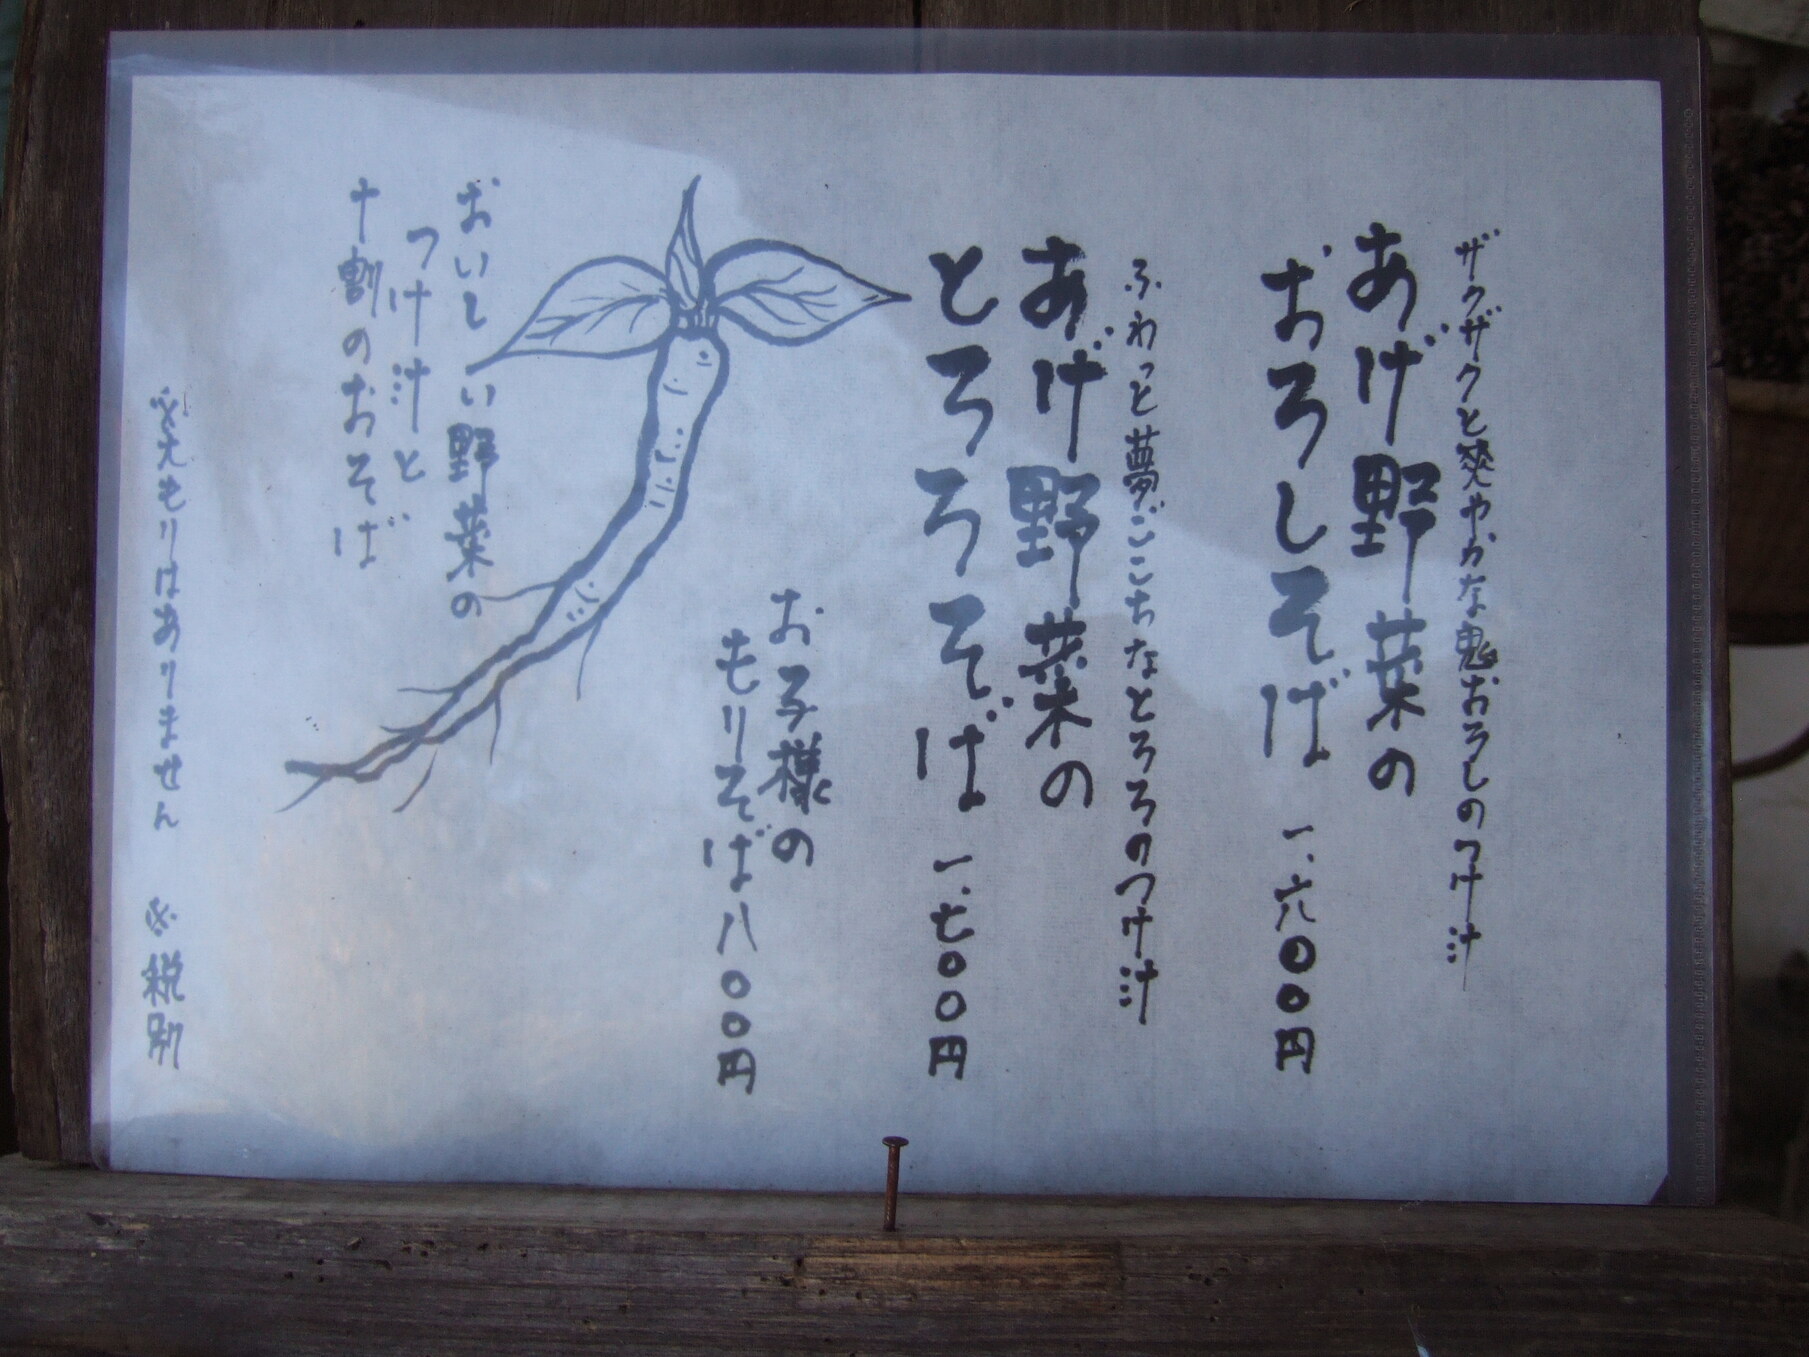 ザクザクと爽やかな鬼おろしのつけ汁
あげ野菜の
おろしそば 一、六〇〇円
ふわっと夢ごこちなとろろのつけ汁
あげ野菜の
とろろそば 一、七〇〇円
お子様の
もりそば 八〇〇円
おいしい野菜の
つけ汁と
十割のおそば
※大もりはありません ※税別